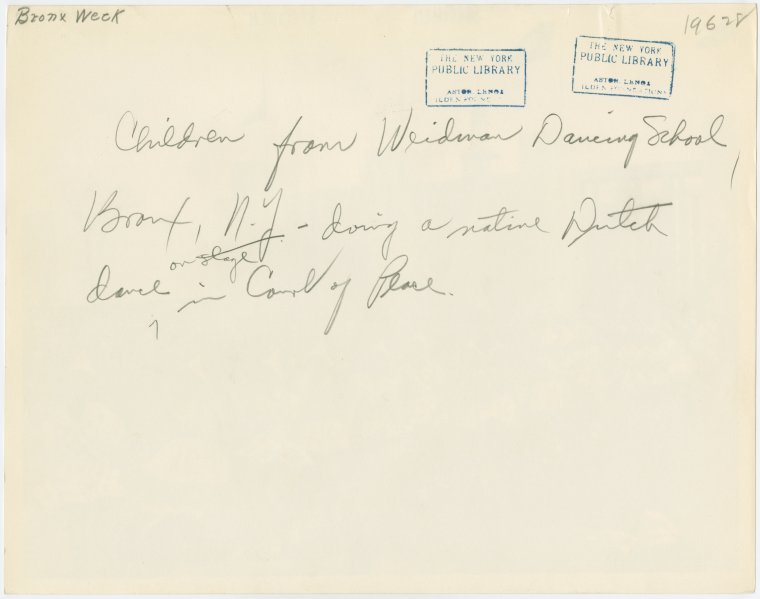 Bronx Week
19628
THE NEW YORK
PUBLIC LIBRARY
ASTOR, LENOX
TILDEN FOUNDATIONS
THE NEW YORK
PUBLIC LIBRARY
ASTOR, LENOX
TILDEN FOUNDATIONS
Children from Weidman Dancing School,
Bronx, N.Y. - doing a native Dutch
on stage
dance in Court of Peace.